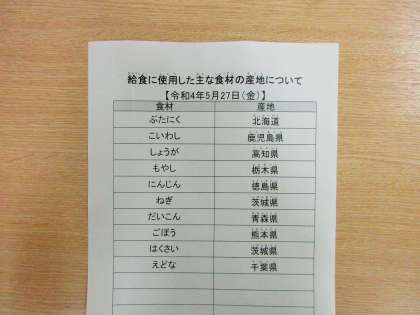 給食に使用した主な食材の産地について
【令和4年5月27日(金)】
食材 産地
ぶたにく 北海道
こいわし 鹿児島県
しょうが 高知県
もやし 栃木県
にんじん 徳島県
ねぎ 茨城県
だいこん 青森県
ごぼう 熊本県
はくさい 茨城県
えどな 千葉県